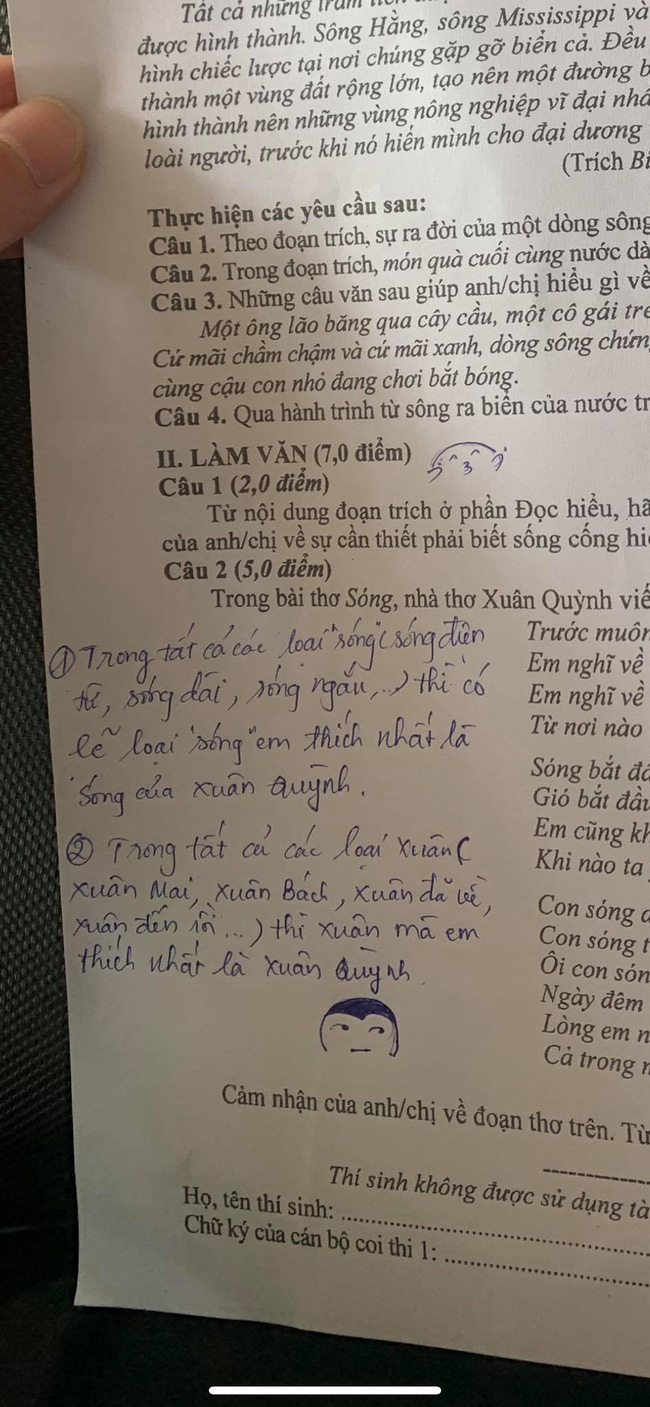 Tất cả những
được hình thành. Sông Hằng, sông Mississippi và
hình chiếc lược tại nơi chúng gặp gỡ biển cả. Đều
thành một vùng đất rộng lớn, tạo nên một đường
hình thành nên những vùng nông nghiệp vĩ đại
loài người, trước khi nó hiến mình cho đại dương
(Trích
Thực hiện các yêu cầu sau:
Câu 1. Theo đoạn trích, sự ra đời của một dòng sông
Câu 2. Trong đoạn trích, món quà cuối cùng nước
Câu 3. Những câu văn sau giúp anh/chị hiểu gì về
Một ông lão băng qua cây cầu, một cô gái
Cứ mãi chầm chậm và cứ mãi xanh, dòng sông
cùng cậu con nhỏ đang chơi bắt bóng.
Câu 4. Qua hành trình từ sông ra biển của nước
II. LÀM VĂN (7,0 điểm)
Câu 1 (2,0 điểm)
Từ nội dung đoạn trích ở phần Đọc hiểu,
của anh/chị về sự cần thiết phải biết sống cống
Câu 2 (5,0 điểm)
Trong bài thơ Sóng, nhà thơ Xuân Quỳnh
① Trong tất cả các loại "sóng" (sóng điện
từ, sóng dài, sóng ngắn,...) thì có
lẽ loại "sóng" em thích nhất là
Sóng của Xuân Quỳnh.
② Trong tất cả các loại Xuân (
Xuân Mai, Xuân Bách, Xuân đã về,
xuân đến rồi...) thì xuân mà em
thích nhất là Xuân Quỳnh.
Trước muôn
Em nghĩ về
Em nghĩ về
Từ nơi nào
Sóng bắt
Gió bắt đầu
Em cũng
Khi nào ta
Con sóng
Con sóng
Ôi con
Ngày đêm
Lòng em
Cả trong
Cảm nhận của anh/chị về đoạn thơ trên. Từ
Thí sinh không được sử dụng
Họ, tên thí sinh:
Chữ ký của cán bộ coi thi 1: